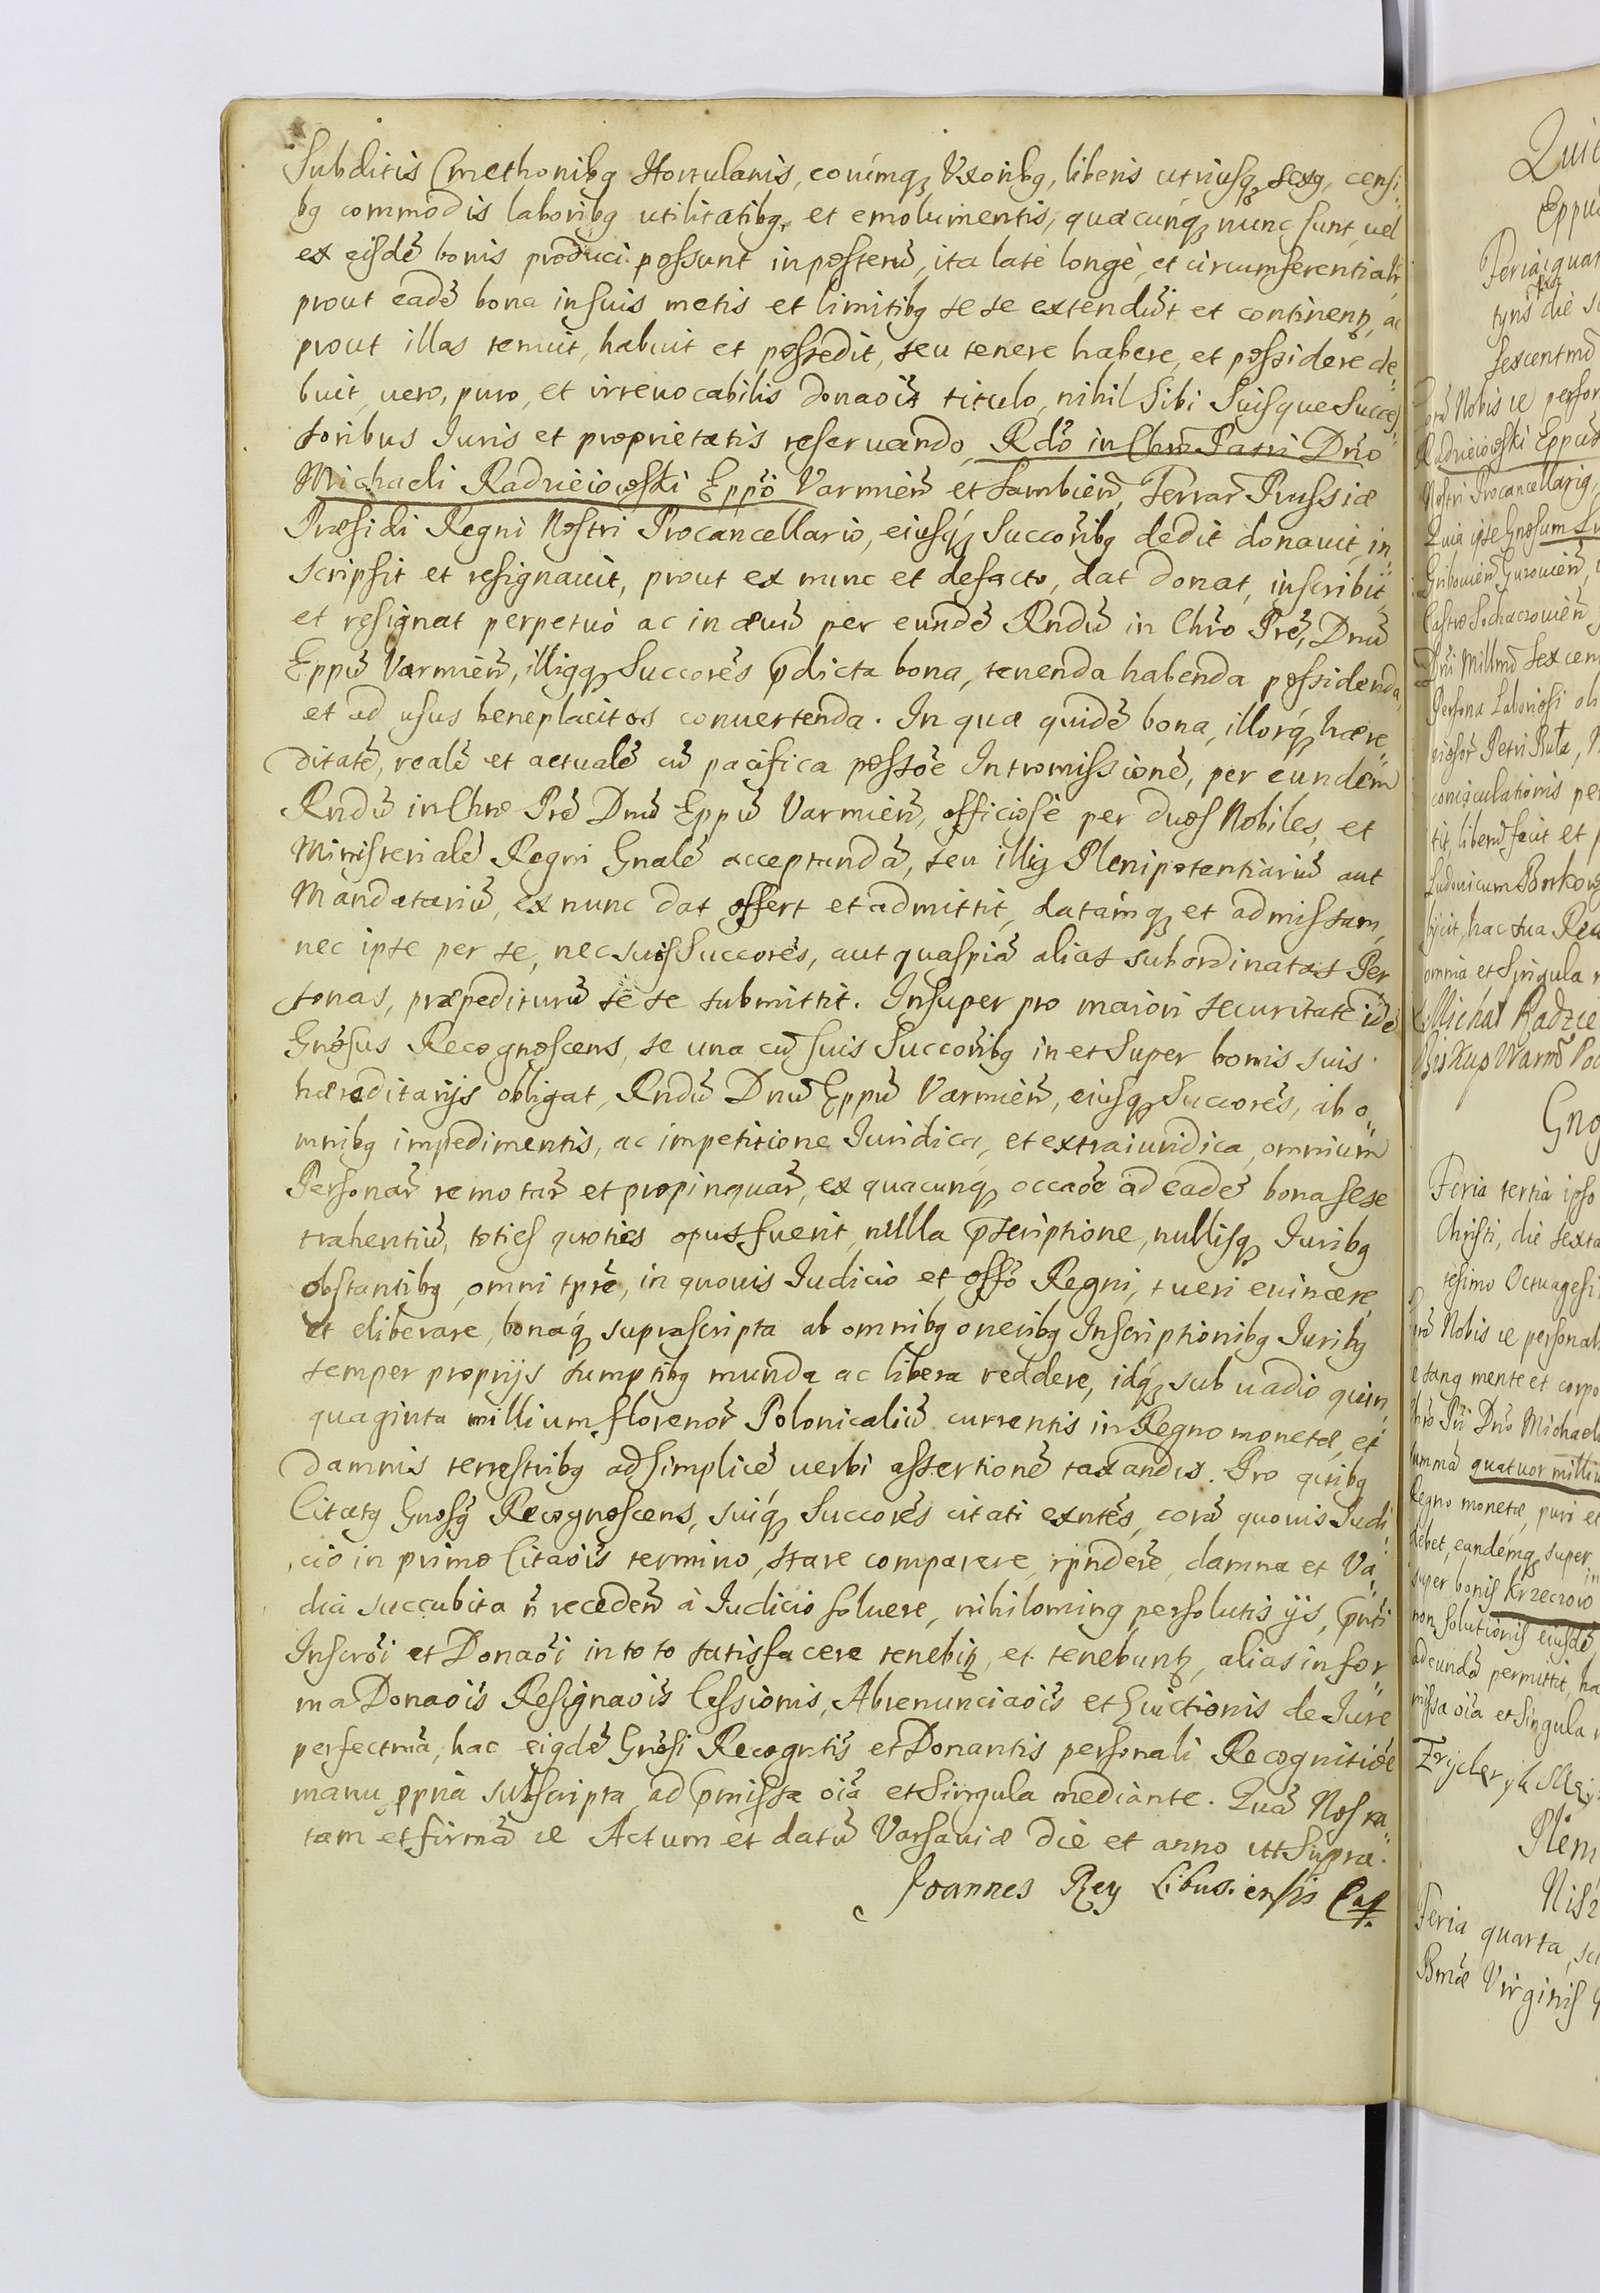 Subditis Cmethonibq Hortulanis, eorumq3 Vxoribq, liberis utriusq3 sexq, censi„
bq commodis laboribq utilitatibq, et emolumentis, quæcunq3 nunc sunt, uel
ex eisdē bonis produci possunt inposterū, ita late longè, et circumferentialr
prout eadē bona insuis metis et limitibq se se extendūt et continent, ac
prout illas tenuit, habuit et possedit, seu tenere habere, et possidere de„
buit, uero, puro, et irreuocabilis donaōis titulo, nihil Sibi Suisque Succes„
soribus Iuris et proprietatis reseruando, Rdō in Chrō Patri Dnō
Michaeli Radzieiowski Eppō Varmień et Sambień, Terrar̄ Prussiæ
Præsidi Regni Nostri Procancellario, eiusq3 Succoribq dedit donauit, in„
scripsit et resignauit, prout ex nunc et defacto, dat donat, inscribit,
et resignat perpetuò ac in æuū per eundē Rndū in Chrō Prē, Dnū
Eppū Varmień, illiqq3 Succores p̄dicta bona, tenenda habenda possidenda,
et ad usus beneplacitos conuertenda. In quæ quidē bona, illorq3 hære„
ditatē, realē et actualē cū pacifica possōe Intromissionē, per eundem
Rndū in Chrō Prē Dnū Eppū Varmień, officiosè per duos Nobiles, et
Ministerialē Regni Gnalē acceptandā, seu illiq Plenipotentiariū aut
Mandatariū, ex nunc dat offert et admittit, datamq3 et admissam,
nec ipse per se, nec suos Succores, aut quaspiā alias subordinatas Per
sonas, præpediturū se se submittit. Insuper pro maiori securitate idē
Gnōsus Recognoscens, se una cū suis Succoribq in et super bonis suis
hæreditarijs obligat, Rndū Dnū Eppū Varmień, eiusq3 Succores, ab o„
mnibq impedimentis, ac impetitione Iuridica, et extraiuridica, omnium
Personar̄ remotar̄ et propinquar̄, ex quacunq3 occaōe ad eadē bona sese
trahentiū, toties quoties opus fuerit, nulla p̄scriptione, nullisq3 Iuribq
obstantibq, omni tp̄re, in quouis Iudicio et offō Regni, tueri euincere,
et eliberare, bonaq3 suprascripta ab omnibq oneribq Inscriptionibq Iuribq
semper proprijs sumptibq munda ac libera reddere, idq3 sub uadio quin„
quaginta millium florenor̄ Polonicaliū currentis in Regno monetæ, et
damnis terrestribq ad simplicē uerbi assertionē taxandis. Pro quibq
Citatq Gnosq Recognoscens, suiq3 Succores citati exntēs, corā quouis Iudi„
cio in primo Citaōis termino, stare comparere, rn̄dere, damna et Va„
dia succubita n̄ receden̄ à Iudicio soluere, nihilominq persolutis ijs, p̄nti
Inscrōi et Donaōi in toto satisfacere tenebit, et tenebunt, alias in for„
ma Donaōis Resignaōis Cessionis, Abrenunciaōis et Euictionis de Iure
perfectmā, hac eiqdē Gnōsi Recogntis et Donantis personali Recognitiōe
manu ppria subscripta ad p̄missa oīa et singula mediante. Quā Nos ra„
tam et firmā ꝛc Actum et datū Varsauiæ die et anno utt supra.
Joannes Rey Libusiensis Cap.
Quit
Eppu
Feria quar
tyris die s
sexcentmō
Nobis ꝛc person
Radzieiowski Eppūs
Nostri Procancellariq,
Quia ipse Gnosum
Castro Sochaczouień
Dni Millmō sexcen
Persona Laboriosi ob
conisculationis per
tit, liberū fecit et
Ludouicum Borkow
bijcit, hac sua Rec
omnia et singula
Michał Radzie
Biskup Warm Pod
Gno
Feria tertia ipso
Christi, die sexta
tesimo Octuagesi
Nobis ꝛc personal
mente et corpo
Dnō Michael
quatuor milliu
Regno monetæ, puri et
debet, eandemq3 super
super bonis Krzeczow
non solutionis eiusdē
ad eundū permittit, ha
missa oīa et singula
Plen
Nis
Feria quarta,
Bmæ Virginis